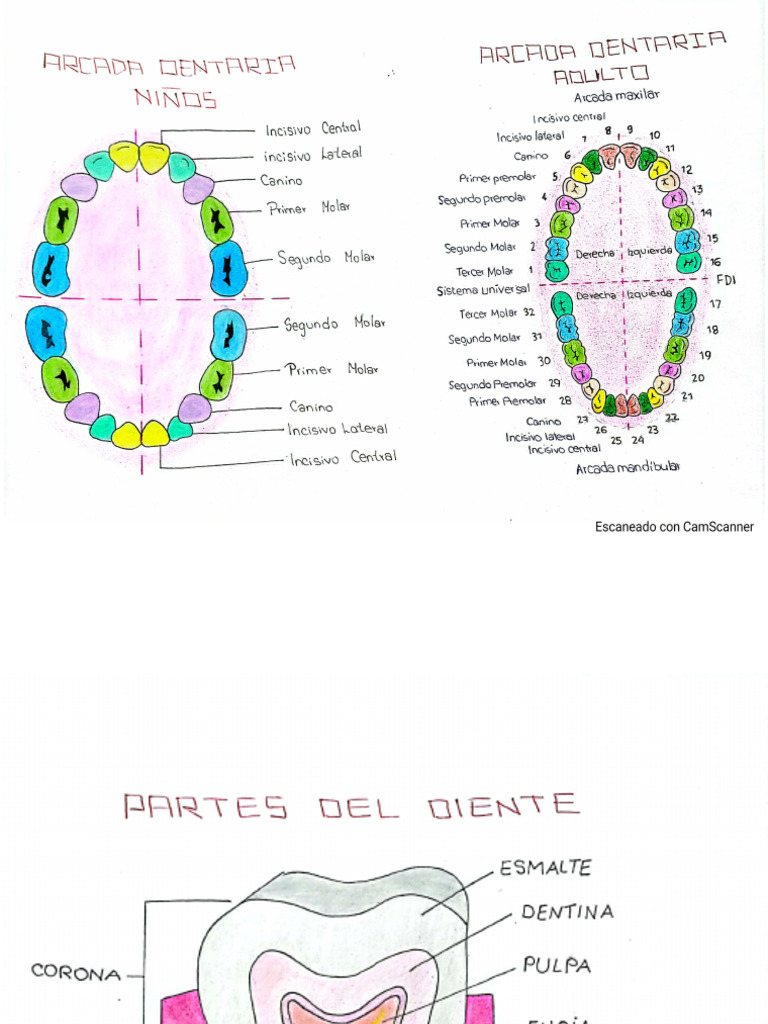 ARCADA DENTARIA
NIÑOS
Incisivo Central
incisivo Lateral
Canino
Primer Molar
Segundo Molar
Segundo Molar
Primer Molar
Canino
Incisivo Lateral
Incisivo Central
ARCADA DENTARIA
ADULTO
Arcada maxilar
Incisivo central
Incisivo lateral 7 8 9 10
Canino 6 11
Primer premolar 5 12
Segundo premolar 4 13
Primer Molar 3 14
Segundo Molar 2 15
Tercer Molar 1 16
Derecha Izquierda
Sistema universal FDI
Derecha Izquierda
Tercer Molar 32 17
Segundo Molar 31 18
Primer Molar 30 19
Segundo Premolar 29 20
Primer Premolar 28 21
Canino 27 22
Incisivo lateral 26 23
Incisivo central 25 24
Arcada mandibular
Escaneado con CamScanner
PARTES DEL DIENTE
ESMALTE
DENTINA
CORONA
PULPA